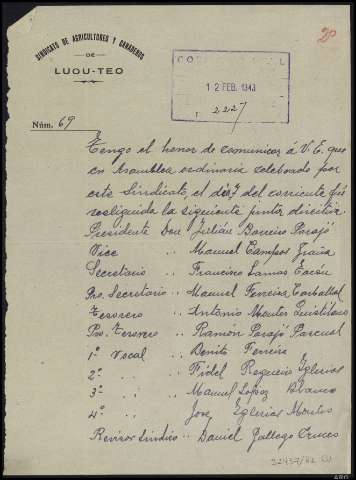 20
SINDICATO DE AGRICULTORES Y GANADEROS
DE
LUOU-TEO
12 FEB. 1943
2227
Núm. 69
Tengo el honor de comunicar á V.E. que
en Asamblea ordinaria celebrada por
este Sindicato, el dia 7 del corriente fué
reelijida la siguiente junta directiva
Presidente Don Julián Barreiro Parajó
Vice " Manuel Campos Graña
Secretario " Francisco Lamas
Pro. Secretario " Manuel Ferreira Carballal
Tesorero " Antonio Montes Quistilano
Pro. Tesorero " Ramón Parajó Pascual
1º Vocal " Benito Ferreiro
2º " " Fidel Regueiro Iglesias
3º " " Manuel López Blanco
4º " " Jose Iglesias Montes
Revisor Sindico " Daniel Gallego Truces